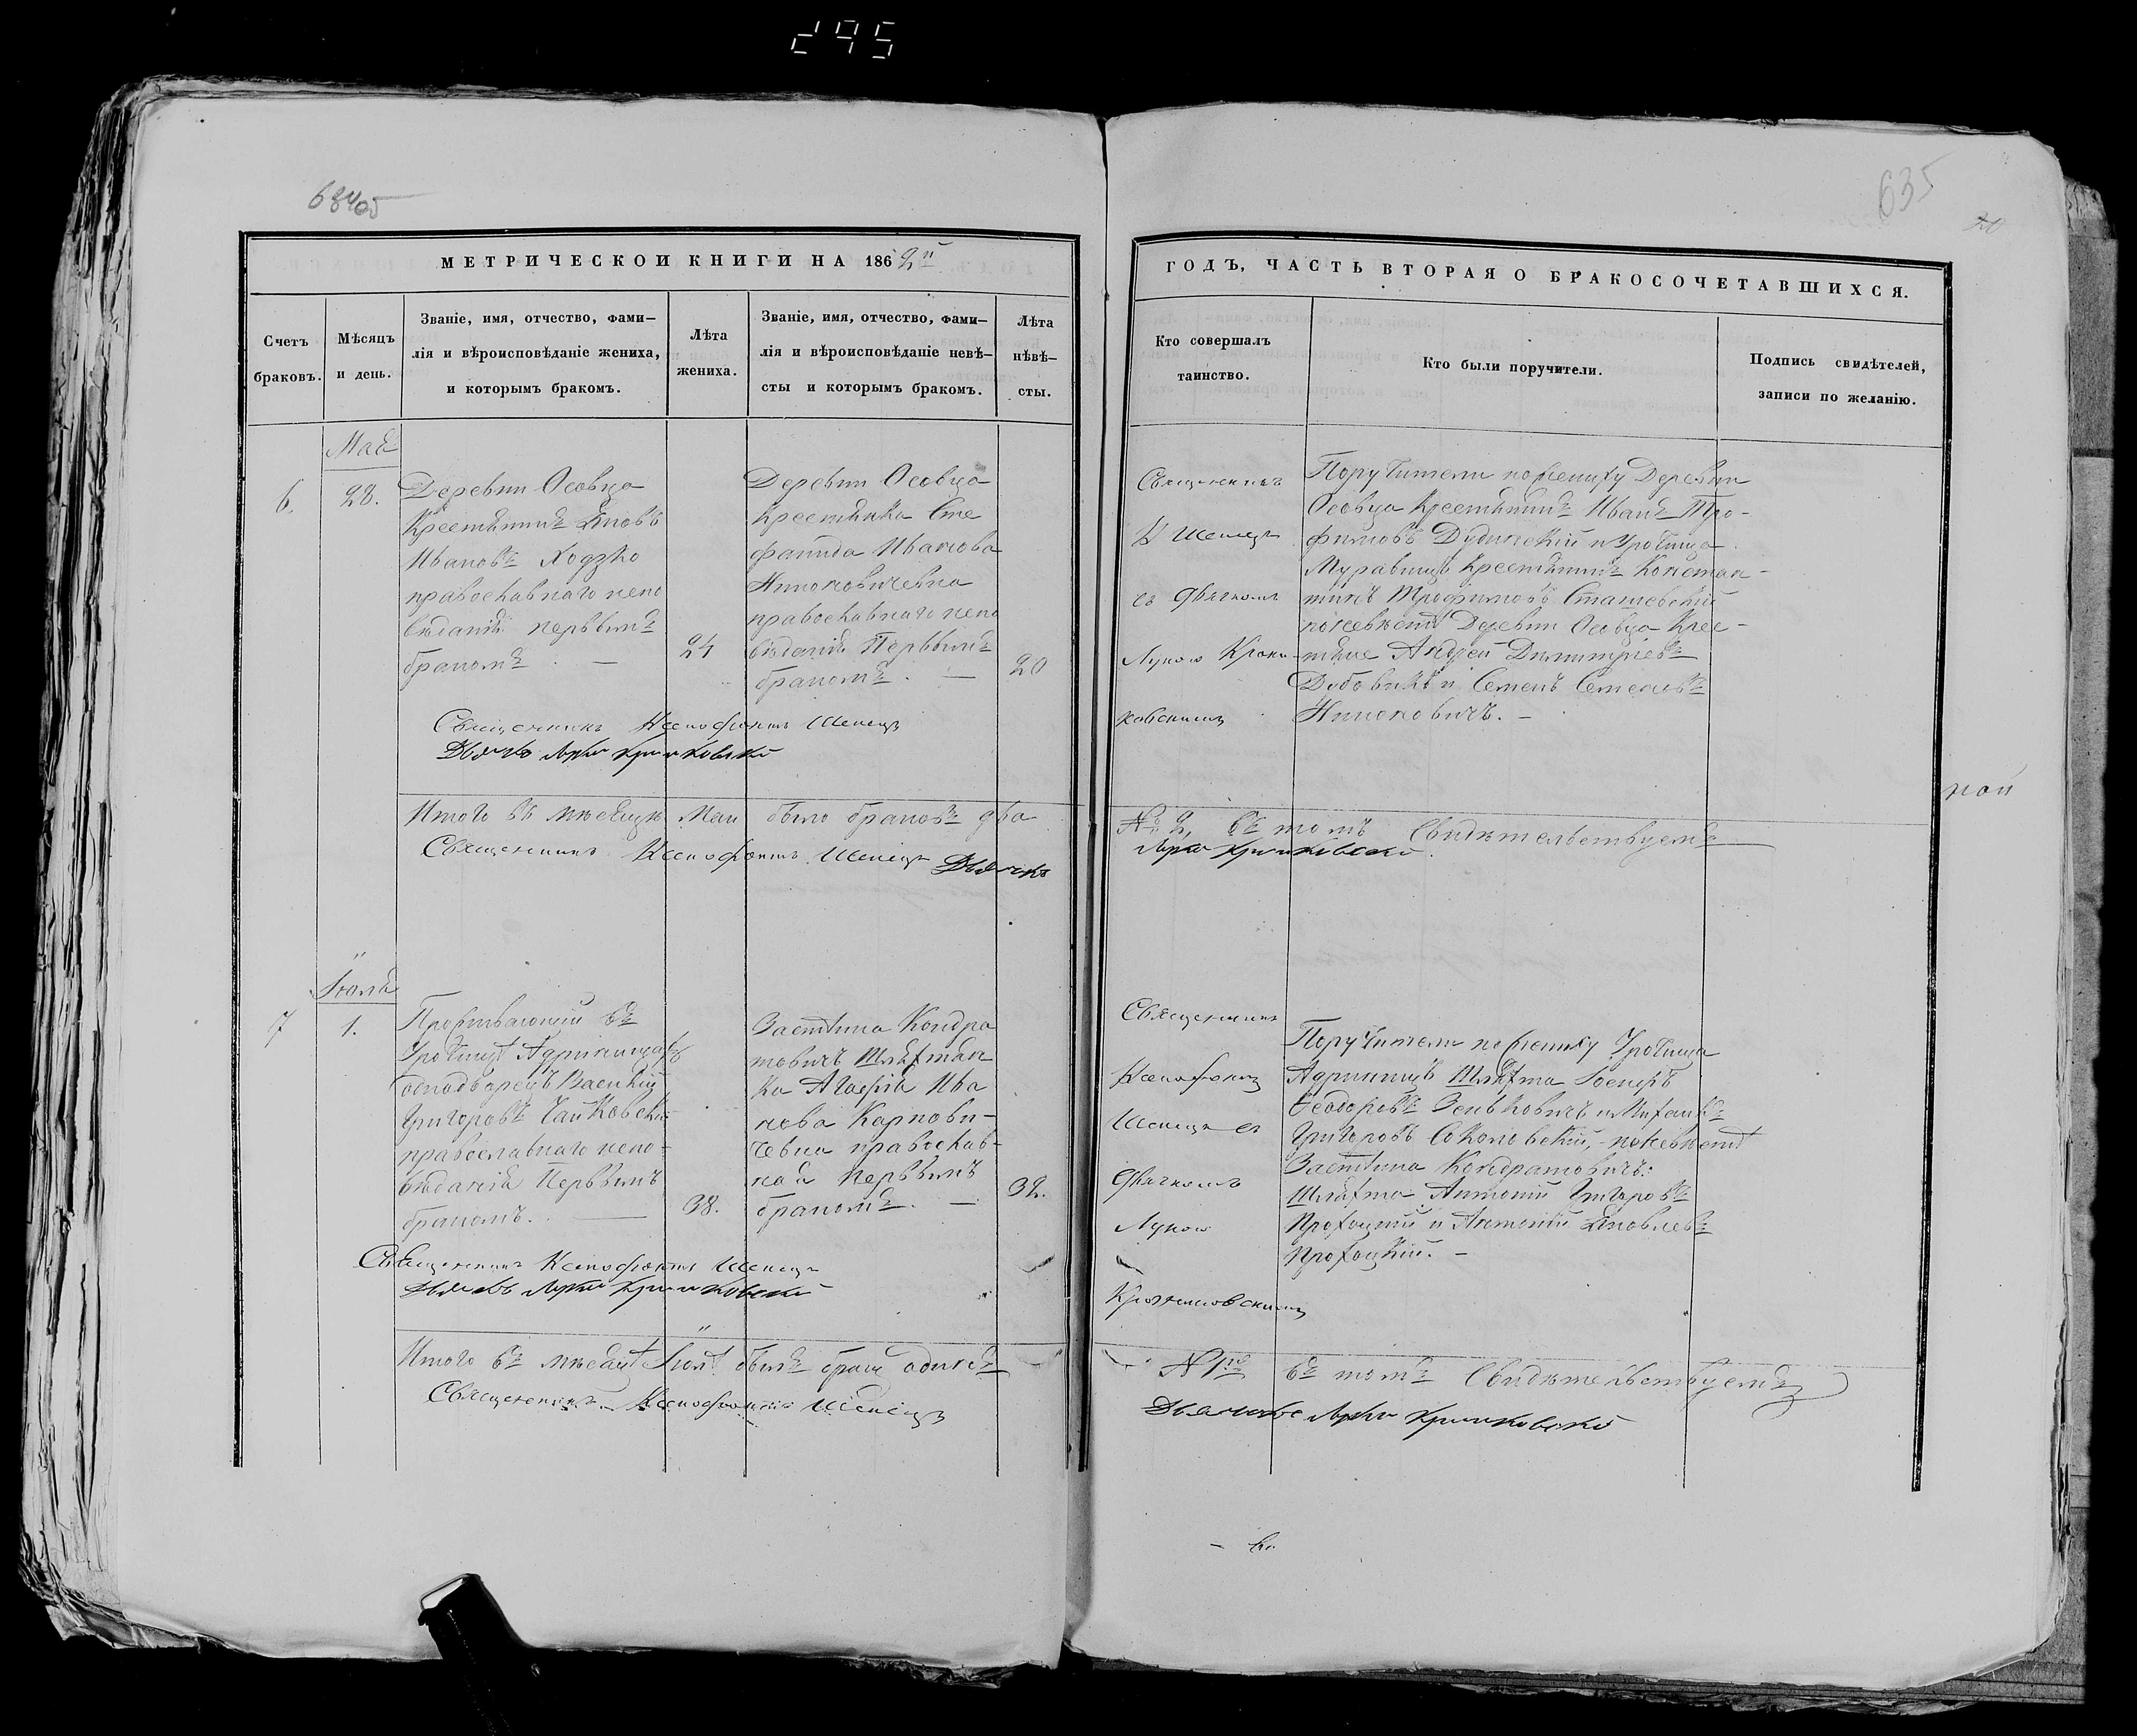 295
635
МЕТРИЧЕСКОЙ КНИГИ НА 1862й
Счетъ браковъ.
Мѣсяцъ и день.
Званіе, имя, отчество, фами–
лія и вѣроисповѣданіе жениха,
и которымъ бракомъ.
Лѣта
жениха.
Званіе, имя, отчество, фами–
лія и вѣроисповѣданіе невѣ–
сты и которымъ бракомъ.
Лѣта
нѣвѣ–
сты.
Мая
6.
28.
Деревни Осовца
Крестьянинъ Яковъ
Ивановъ Ходзко
православнаго испо
вѣданія первымъ
бракомъ. —
24
Деревни Осовца
Крестьянка Сте
фанида Иванова
православнаго испо
вѣданія Первымъ
бракомъ. —
20
Священникъ Ксенофонтъ Шепецъ
Дьячокъ Лука
Итого въ мѣсяцѣ Маи было браковъ два
Священникъ Ксенофонтъ Шепецъ Дьячокъ
Іюля
7
1.
Проживающій въ
Урочищѣ
Василій
Григоровъ Чайковскій
православнаго испо-
вѣданія Первымъ
бракомъ. —
38.
Застѣнка Кондра
товичъ Шляхтян
ка Агафія Ива
нова Карпови-
чевна православ-
ная первымъ
бракомъ. —
32.
Священникъ Ксенофонтъ Шепецъ
Дьячокъ Лука
Итого въ мѣсяцѣ Іюлѣ былъ бракъ одинъ
Священникъ Ксенофонтъ Шепецъ
635
ГОДЪ, ЧАСТЬ ВТОРАЯ О БРАКОСОЧЕТАВШИХСЯ.
Кто совершалъ
таинство.
Кто были поручители.
Подпись свидѣтелей,
записи по желанію.
Священникъ
К Шепецъ
съ дьячкомъ
Лукою
Поручители по жениху Деревни
Осовца Крестьянинъ Иванъ Тро-
фимовъ и Урочища
Крестьянинъ Констан-
тинъ Трофимовъ Сташевскій
по невѣстѣ Деревни Осовца Крес-
тьяне Андрей Димитріевъ
Дубовикъ и Семенъ Семеновъ
№ 2, въ томъ Свидѣтельствуемъ
Лука
Священникъ
Ксенофонтъ
Шепецъ съ
дьячкомъ
Лукою
Поручители по жениху Урочища
Шляхта Іосифъ
Феодоровъ Зеньковичъ и Михаилъ
Григоровъ Соколовскій, по невѣстѣ
Застѣнка Кондратовичъ:
Шляхта Антоній Григоровъ
Прохоцкій и Антоній Яковлевъ
Прохоцкій. —
№ 1й въ томъ Свидѣтельствуемъ
Дьячокъ Лука